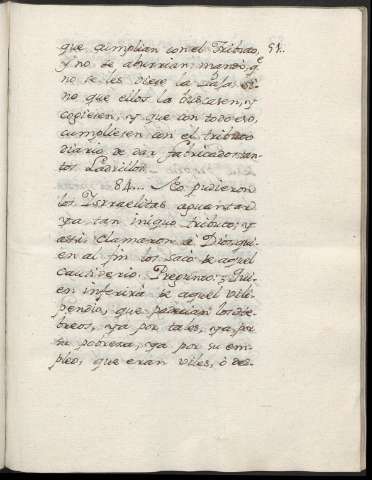 que cumplian con el Tributo, 51.
y no se aburrian, mandó, q.e
no se les diese la Paja, si-
no que ellos la buscasen, y
cogiesen, y que con todo eso,
cumpliesen con el tributo
diario de dar fabricados tan-
tos Ladrillos.
84... No pudieron
los Israelitas aguantar
ya tan iniquo tributo; y
assi clamaron à Dios, qui-
en al fin los Sacó de aquel
cautiverio. Pregunto: ¿Qui-
en inferirá de aquel vili-
pendio, que padecian los He-
breos, ya por tales, ya por
su pobreza, ya por su em-
pleo, que eran viles, ò des-